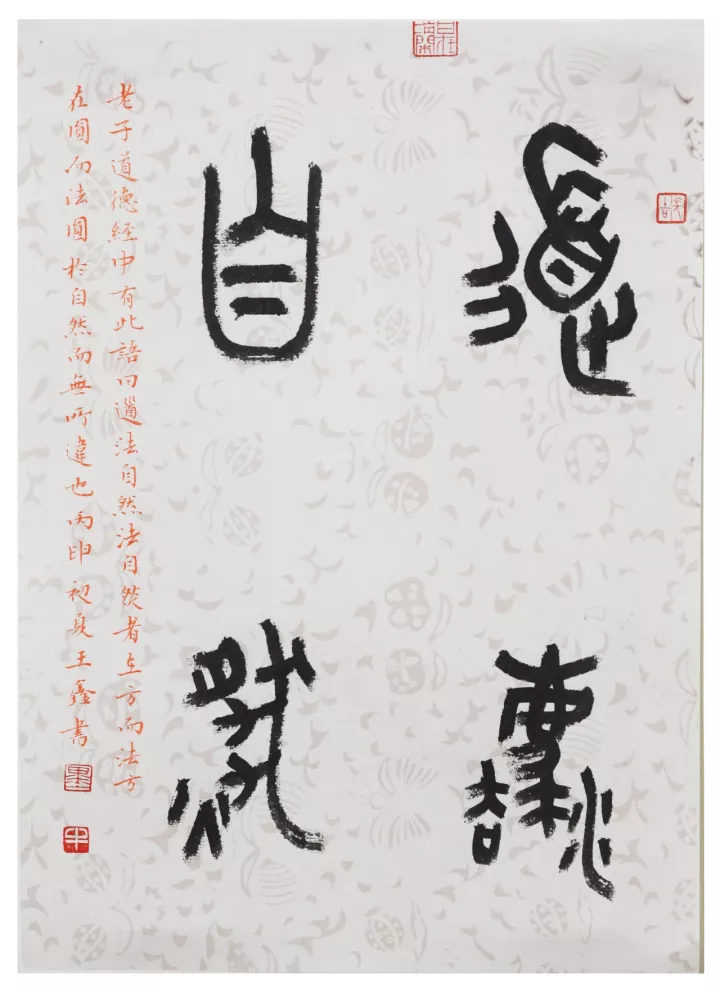 道灋
自然
老子道德經中有此語曰道法自然法自然者在方而法方
在圓而法圓於自然而無所違也丙申初夏王鑫書